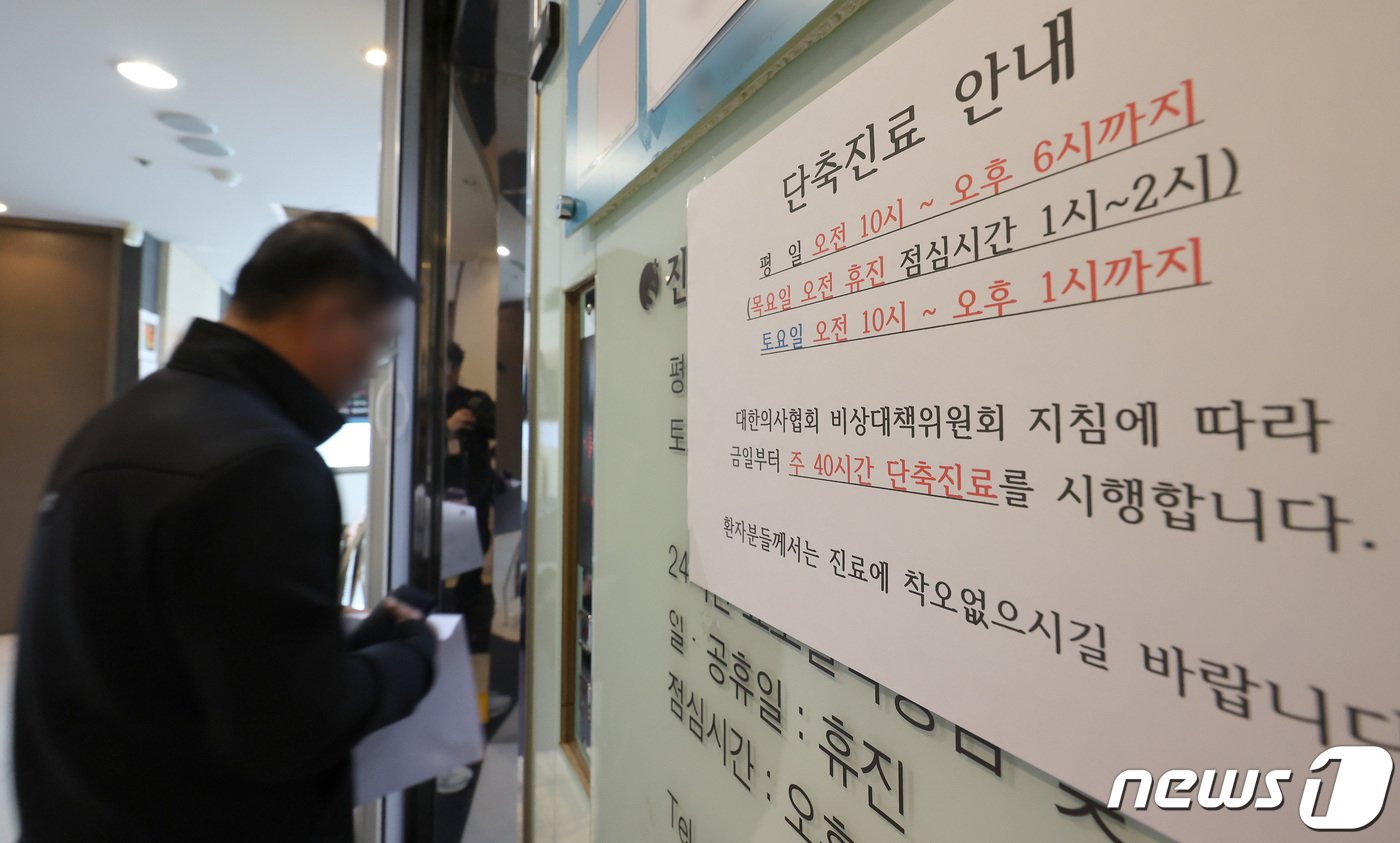 단축진료 안내
평 일 오전 10시 ~ 오후 6시까지
(목요일 오전 휴진 점심시간 1시~2시)
토요일 오전 10시 ~ 오후 1시까지
대한의사협회 비상대책위원회 지침에 따라
금일부터 주 40시간 단축진료를 시행합니다.
환자분들께서는 진료에 착오없으시길 바랍니다
진
평
토
24
일·공휴일 : 휴진
점심시간 : 오후
Tel
news1